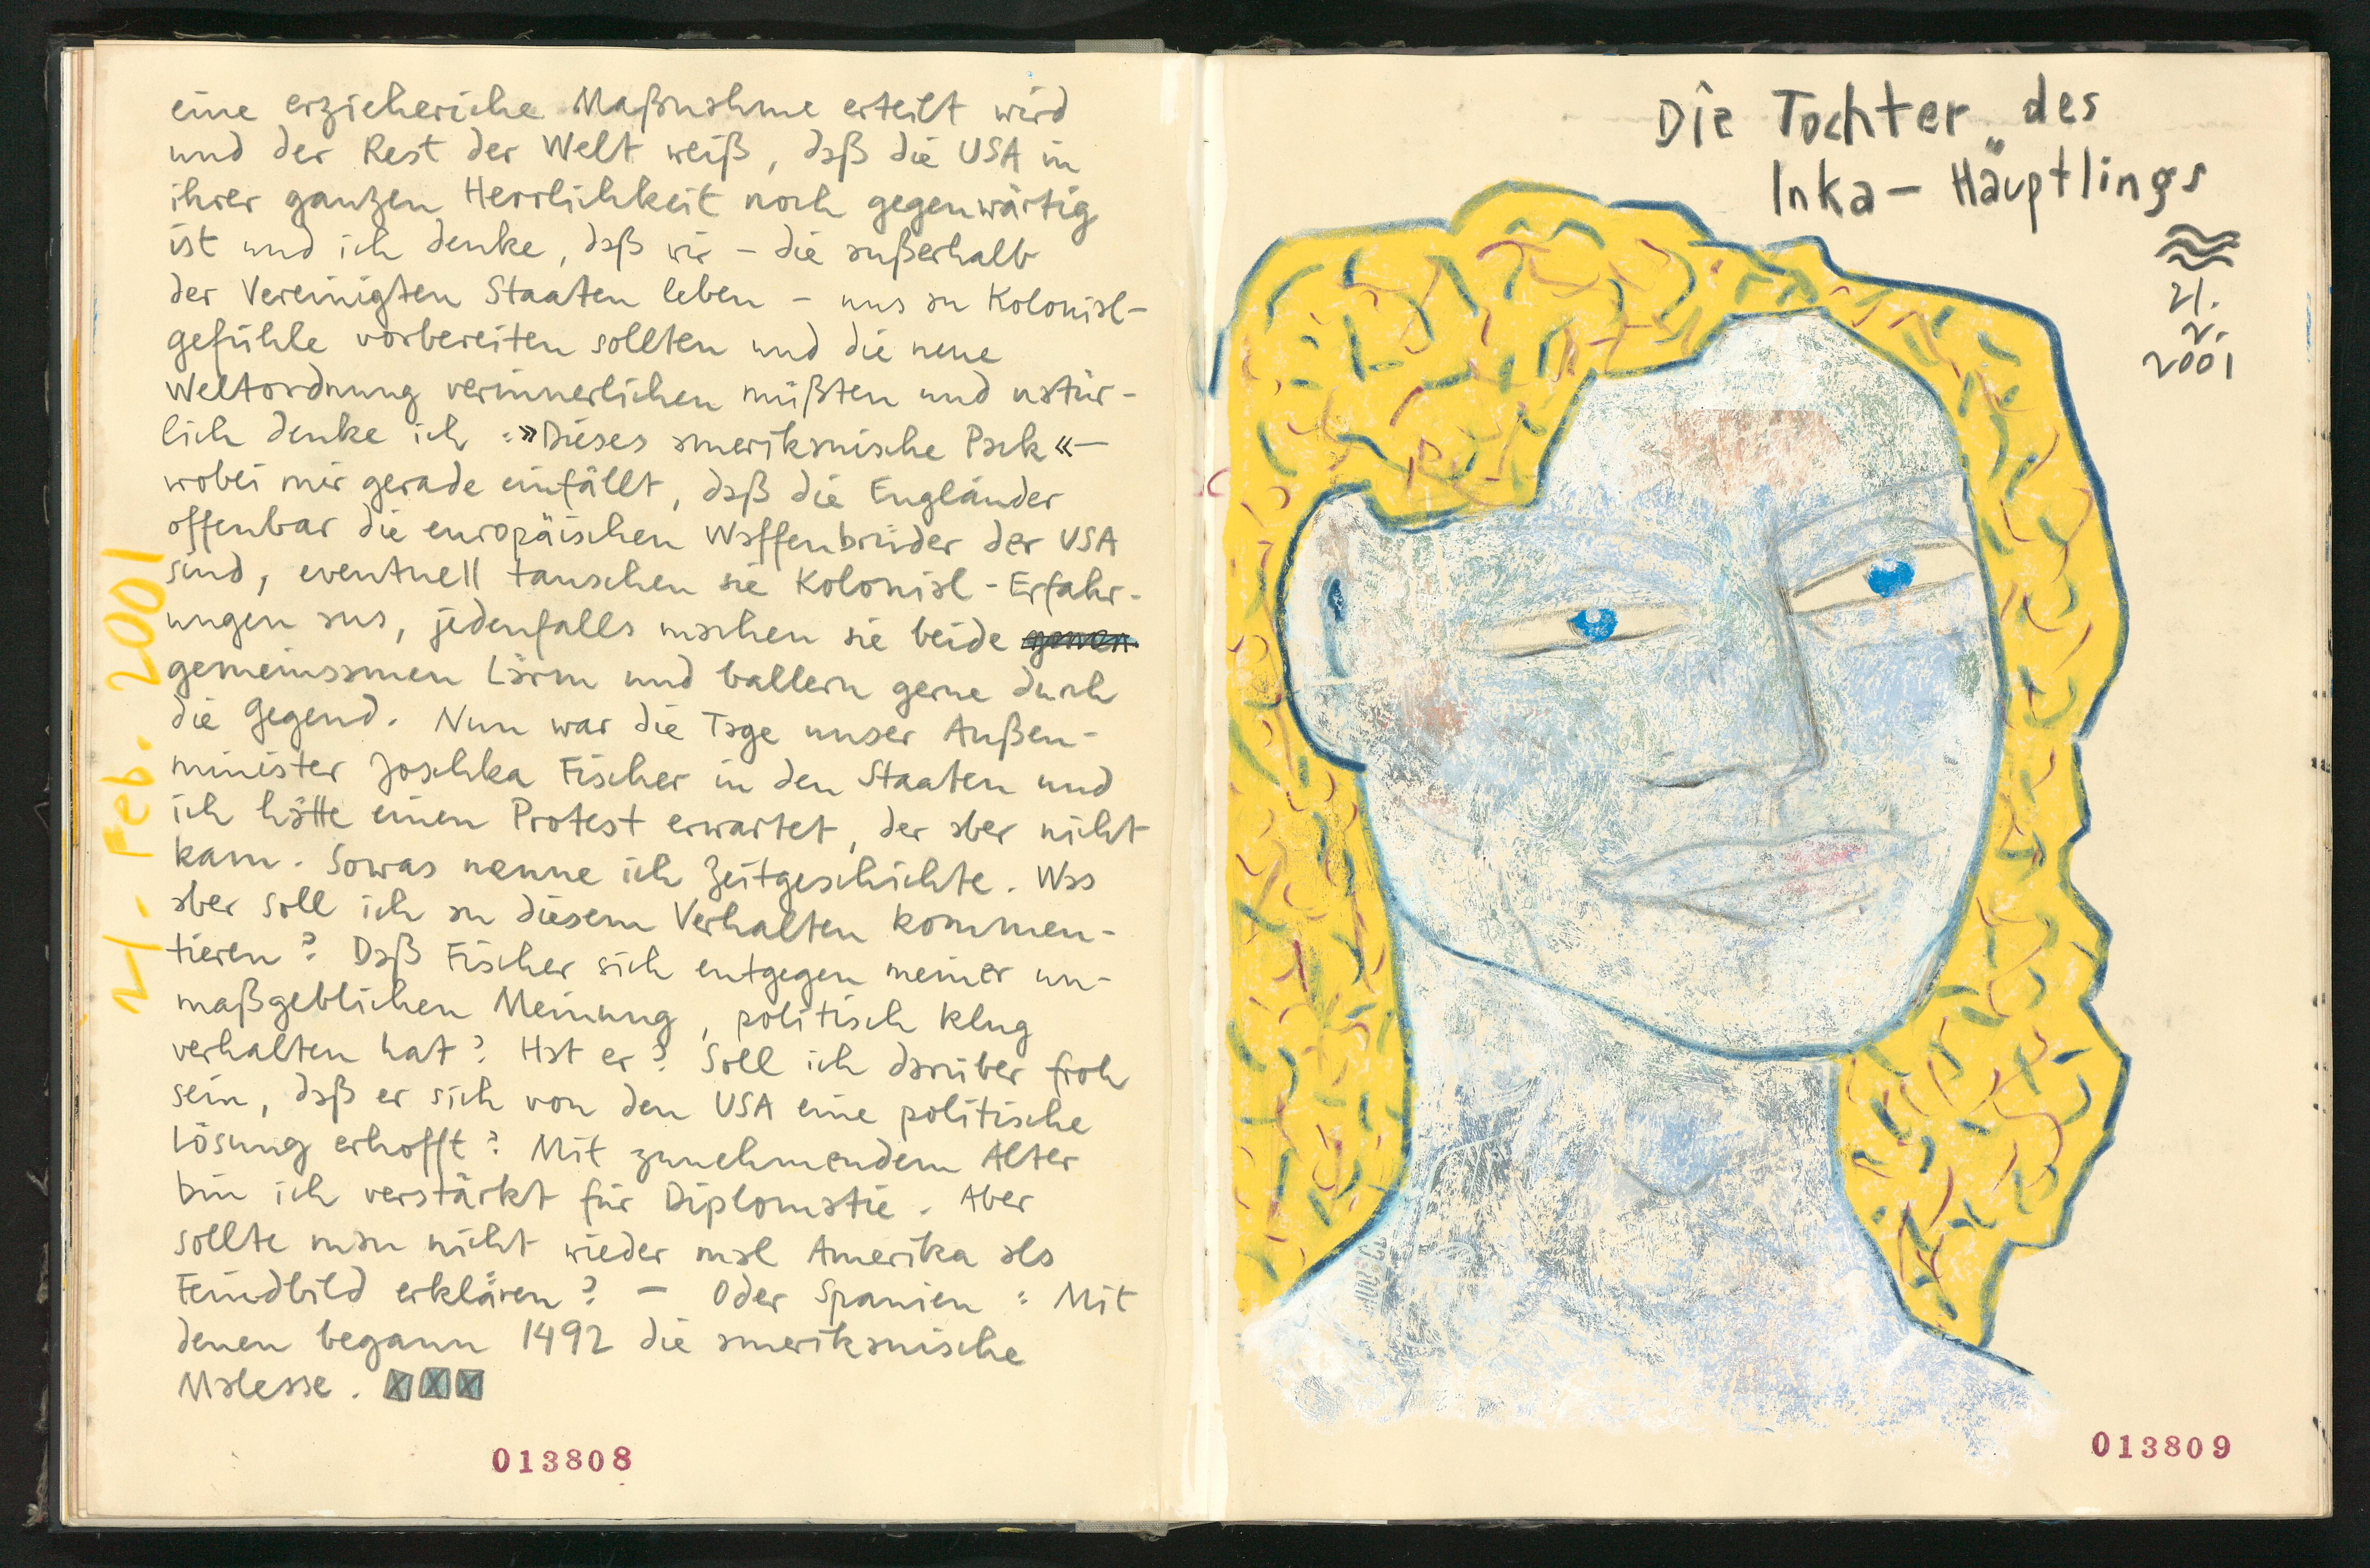 eine erzieheriche Maßnahme erteilt wird
und der Rest der Welt weiß, daß die USA in
ihrer ganzen Herrlichkeit noch gegenwärtig
ist und ich denke, daß wir – die außerhalb
der Vereinigten Staaten leben – uns an Kolonial-
gefühle vorbereiten sollten und die neue
Weltordnung verinnerlichen müßten und natür-
lich denke ich : »Dieses amerikanische Pack« –
wobei mir gerade einfällt, daß die Engländer
offenbar die europäischen Waffenbrüder der USA
sind, eventuell tauschen sie Kolonial-Erfahr-
ungen aus, jedenfalls machen sie beide
gemeinsamen Lärm und ballern gerne durch
die Gegend. Nun war die Tage unser Außen-
minister Joschka Fischer in den Staaten und
ich hätte einen Protest erwartet, der aber nicht
kam. Sowas nenne ich Zeitgeschichte. Was
aber soll ich an diesem Verhalten kommen-
tieren? Daß Fischer sich entgegen meiner un-
maßgeblichen Meinung, politisch klug
verhalten hat? Hat er? Soll ich darüber froh
sein, daß er sich von den USA eine politische
Lösung erhofft? Mit zunehmendem Alter
bin ich verstärkt für Diplomatie. Aber
sollte man nicht wieder mal Amerika als
Feindbild erklären? – Oder Spanien : Mit
denen begann 1492 die amerikanische
Malesse.
21. Feb. 2001
013808
Die Tochter des
Inka – Häuptlings
21.
2.
2001
013809